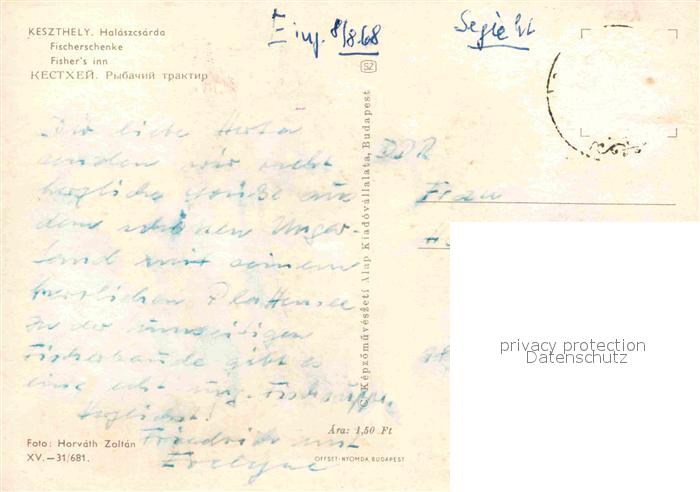 Eing. 8/8.68
KESZTHELY. Halászcsárda
Fischerschenke
Fisher's inn
КЕСТХЕЙ. Рыбачий трактир
SZ
Dir liebe Herta
senden wir recht
herzliche Grüße aus
dem schönen Ungar-
land mit seinem
herrlichen Plattensee
In der
Fischerbaude gibt es
eine ung. Fischsuppe.
Herzlichst!
Friedrich und
Evelyne
Foto: Horváth Zoltán
XV.—31/681.
Képzőművészeti Alap Kiadóvállalata, Budapest
Ára: 1,50 Ft
OFFSET-NYOMDA, BUDAPEST
DDR
Frau
privacy protection
Datenschutz